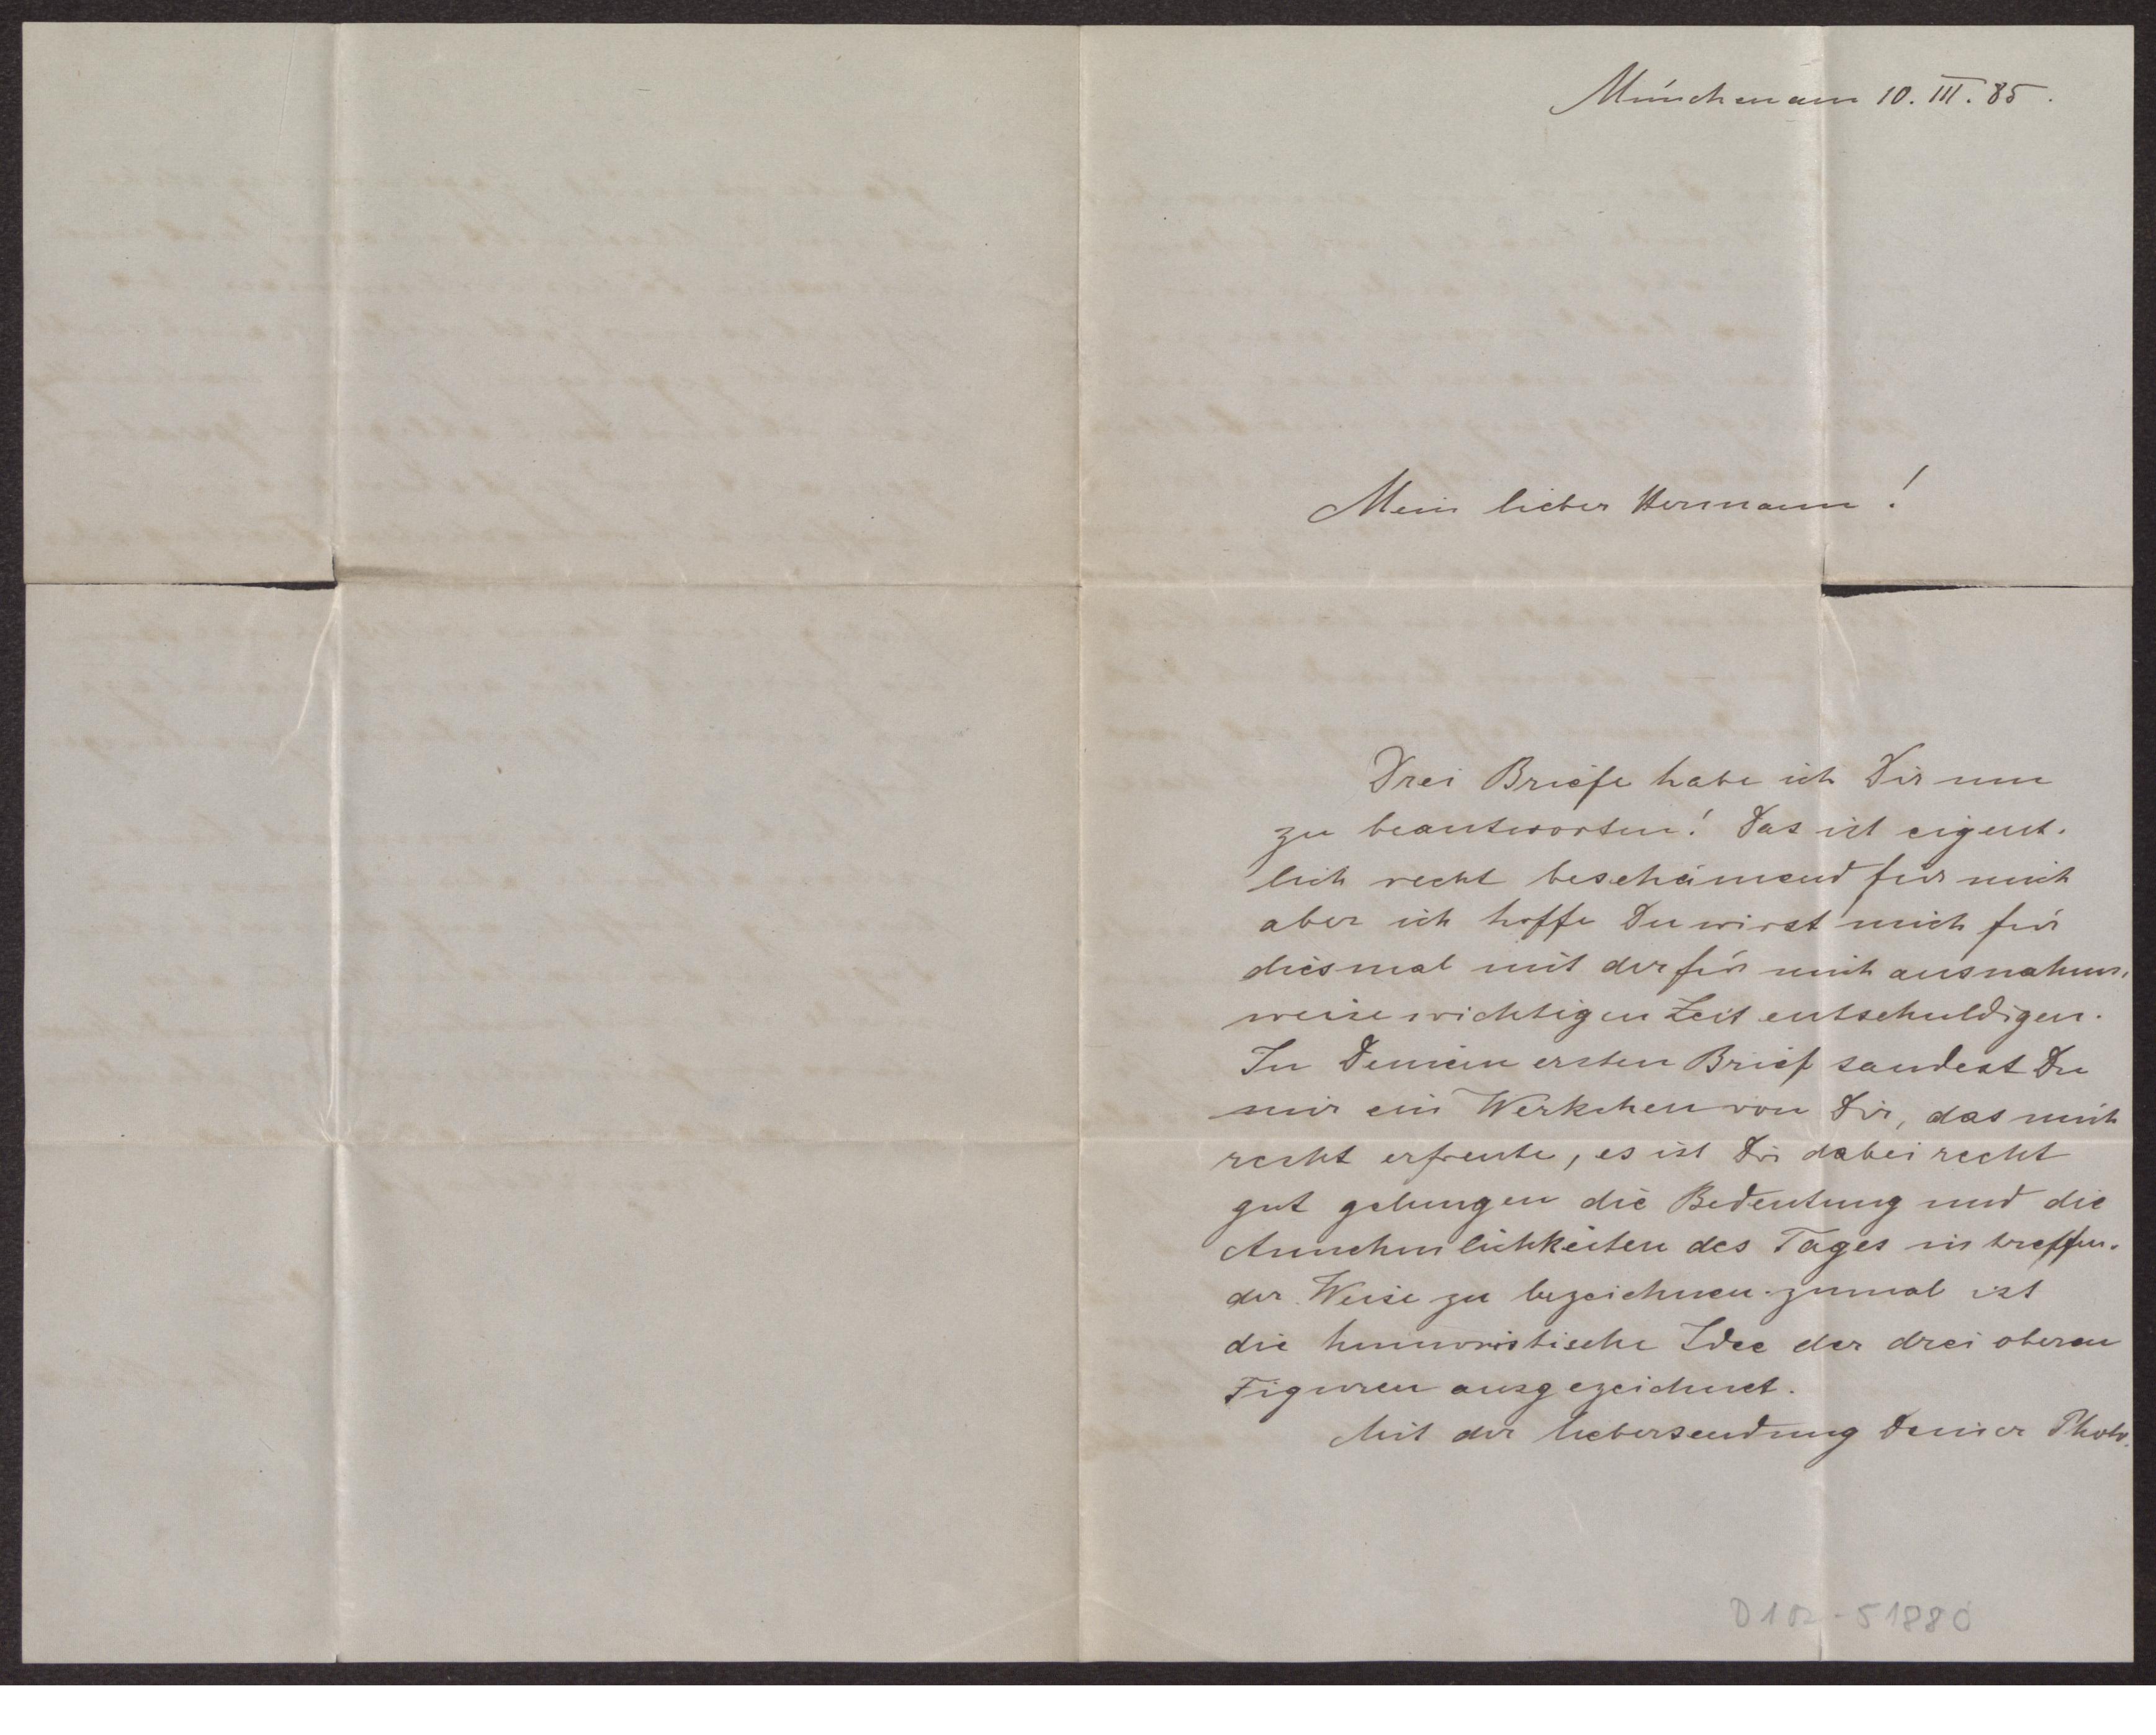 München am 10. III. 85.
Mein lieber Hermann!
Drei Briefe habe ich Dir nun
zu beantworten! Das ist eigent-
lich recht beschämend für mich
aber ich hoffe Du wirst mich für
diesmal mit der für mich ausnahms-
weise wichtigen Zeit entschuldigen.
In Deinem ersten Brief sandest Du
mir ein Werkchen von Dir, das mich
recht erfreute, es ist Dir dabei recht
gut gelungen die Bedeutung und die
Annehmlichkeiten des Tages in treffen-
der Weise zu bezeichnen. zumal ist
die humoristische Idee der drei oberen
Figuren ausgezeichnet.
Mit der Uebersendung Deiner Photo-
51880